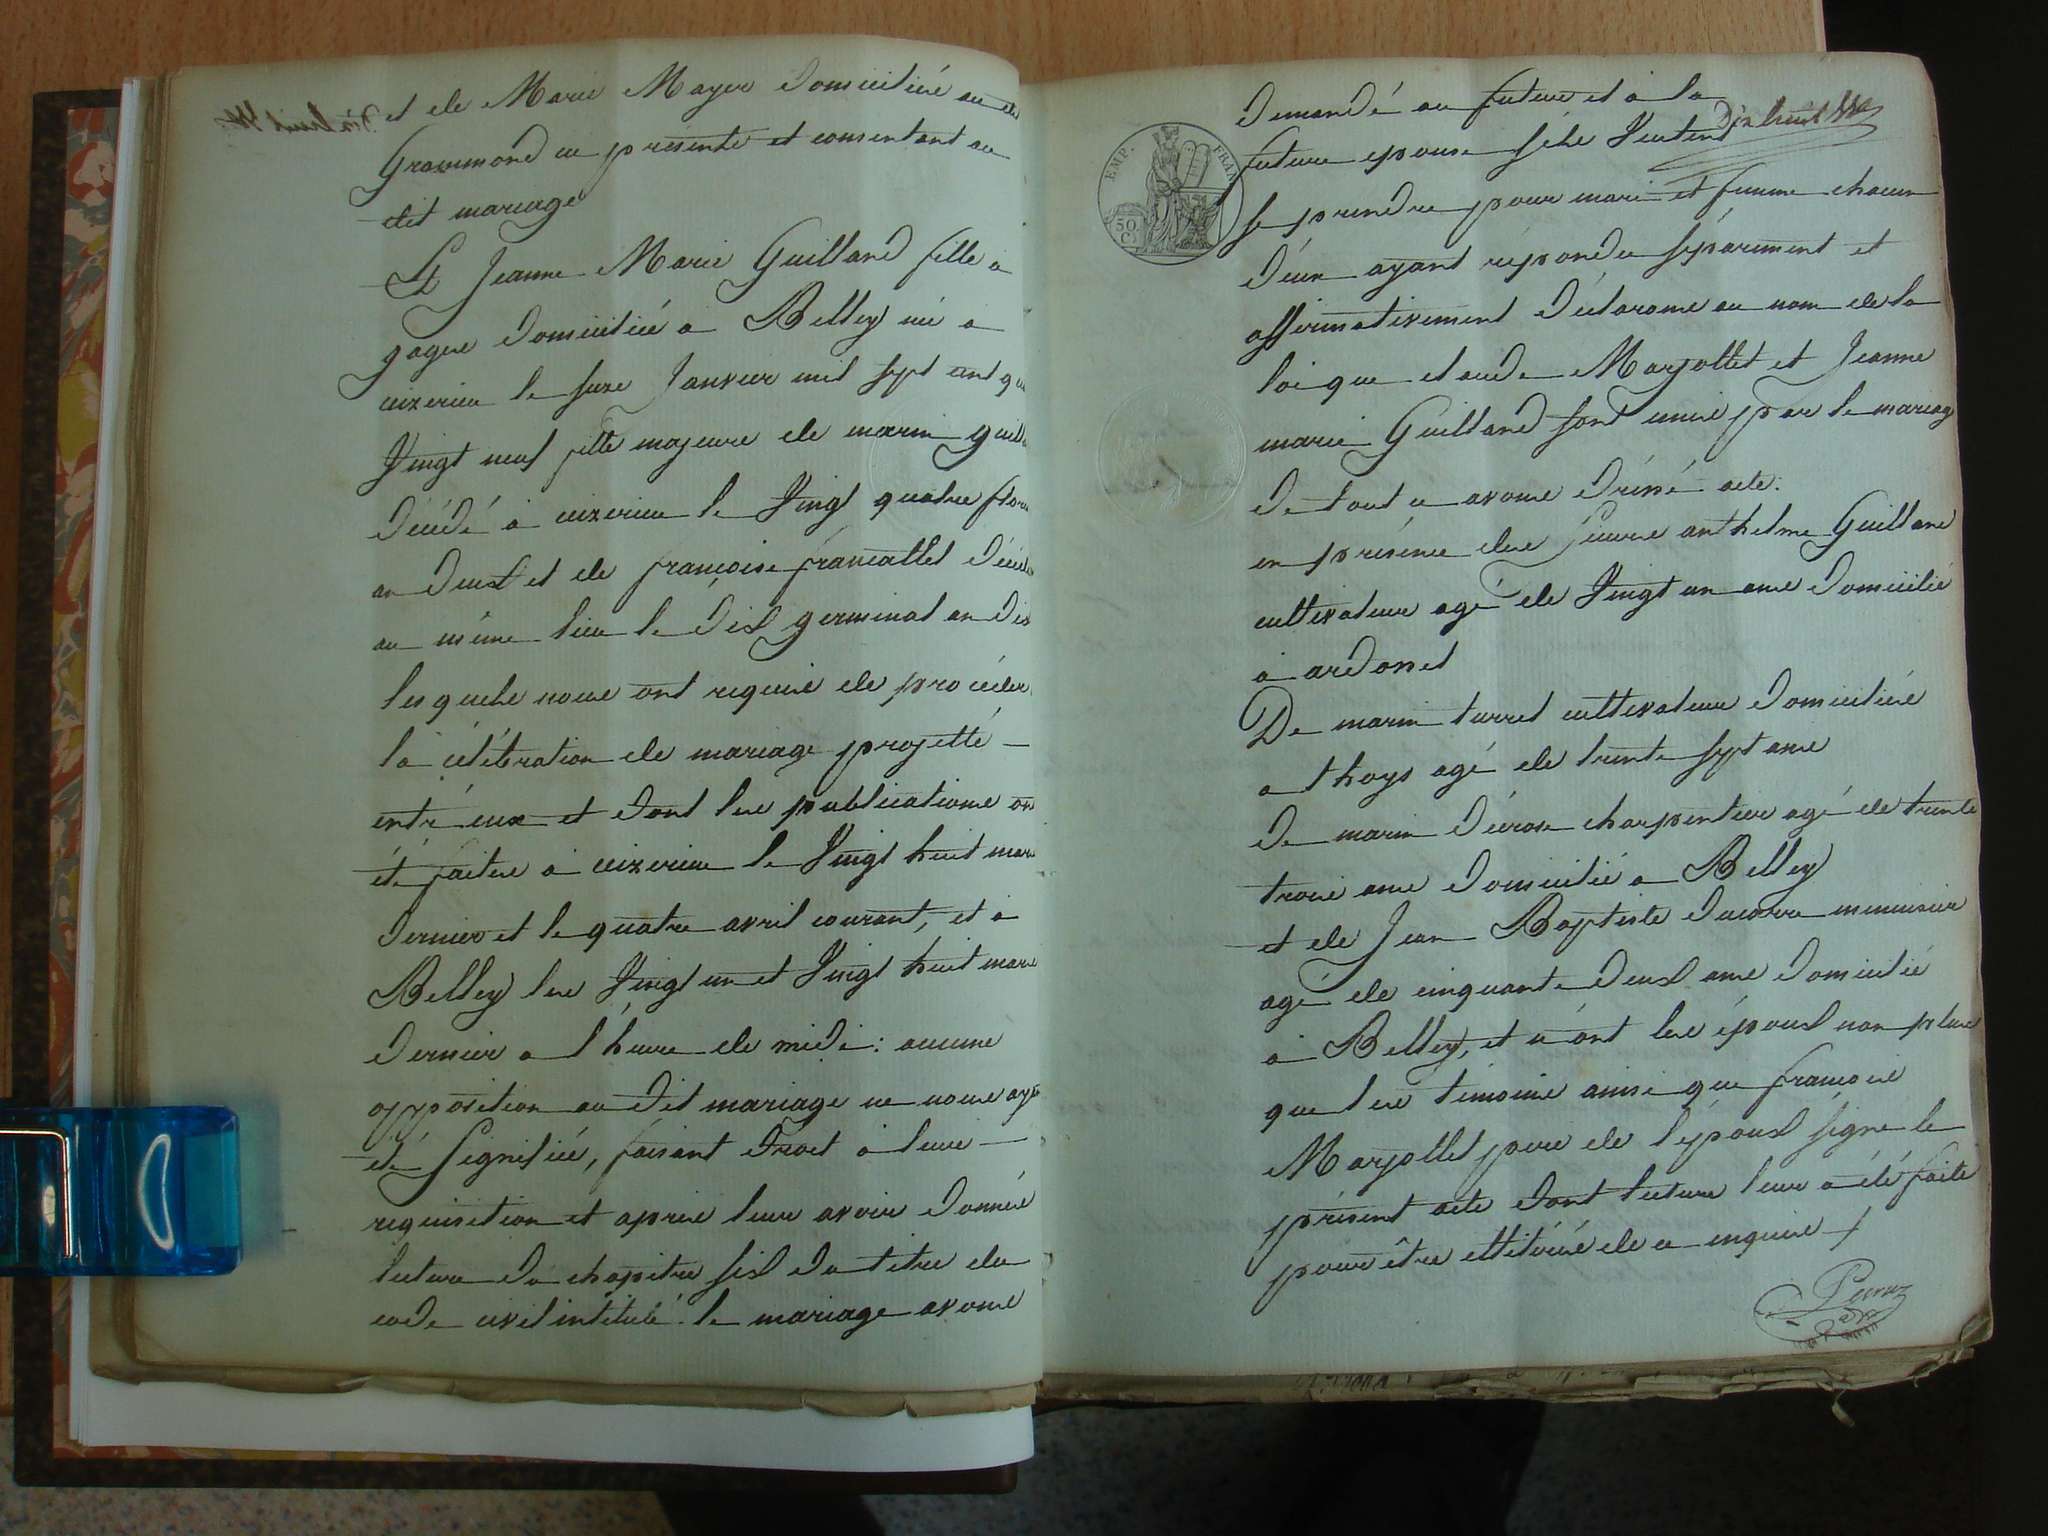 et de Marie Mayer domiciliés au dit
Grammond ici présents et consentant au
dit mariage
Et Jeanne Marie Guilland fille à
gages domiciliée à Belley née à
cuzerieu le seize Janvier mil sept cent qu
Vingt neuf fille majeure de marin guill
décédé à cuzerieu le Vingt quatre flore
an deux et de françoise francallet décéd
au même lieu le dix germinal an dix
lesquels nous ont requis de procéder
la célébration de mariage projetté
entr'eux et dont les publications on
été faites à cuzerieu le Vingt huit mars
dernier et le quatre avril courant, et à
Belley les Vingt un et Vingt huit mars
dernier a l'heure de midi: aucune
opposition au dit mariage ne nous aya
été signifiée, faisant droit à leur
requisition et après leur avoir donné
lecture du chapitre six du titre du
code civil intitulé: le mariage avons
Dix huit
EMP. FRAN
50 C.
demandé au futur et à la
future epouse s'ils veulent
se prendre pour mari et femme chacun
d'eux ayant répondu séparément et
affirmativement déclarons au nom de la
loi que claude Marjollet et Jeanne
marie Guilland sont unis par le mariage
de tout ce avons dréssé acte.
en présence de Pierre anthelme Guilland
cultivateur agé de Vingt un ans domicilié
à ardosset
De marin turrel cultivateur domicilié
a thoys agé de trente sept ans
de marin décrose charpentier agé de trente
trois ans domicilié a Belley
et de Jean Baptiste ducorre menuisier
agé de cinquante deux ans domicilié
à Belley, et n'ont les époux non plus
que les témoins ainsi que françois
Marjollet père de l'époux signé le
présent acte dont lecture leur a été faite
pour être attitrés de ce enquis